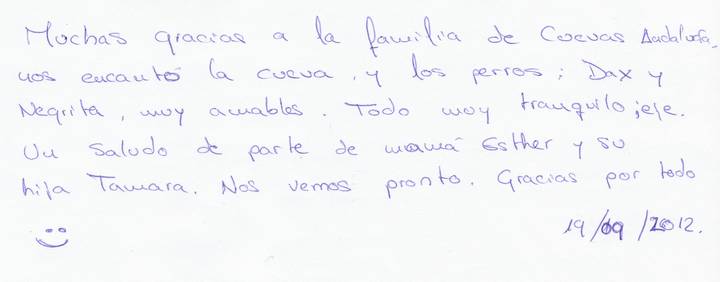 Muchas gracias a la familia de Cuevas Andalucía,
nos encantó la cueva, y los perros; Dax y
Negrita, muy amables. Todo muy tranquilo jeje.
Un saludo de parte de mamá Esther y su
hija Tamara. Nos vemos pronto. Gracias por todo
19/09/2012.